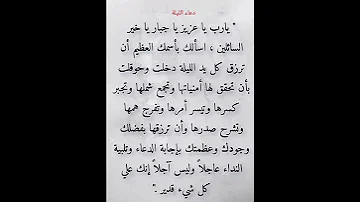 دعاء الليلة
" يارب يا عزيز يا جبار يا خير
السائلين ، اسألك بأسمك العظيم أن
ترزق كل يد الليلة دخلت وحوقلت
بأن تحقق لها أمنياتها وتجمع شملها وتجبر
كسرها وتيسر أمرها وتفرج همها
وتشرح صدرها وأن ترزقها بفضلك
وجودك وعظمتك بإجابة الدعاء وتلبية
النداء عاجلاً وليس آجلاً إنك علي
كل شيء قدير ."